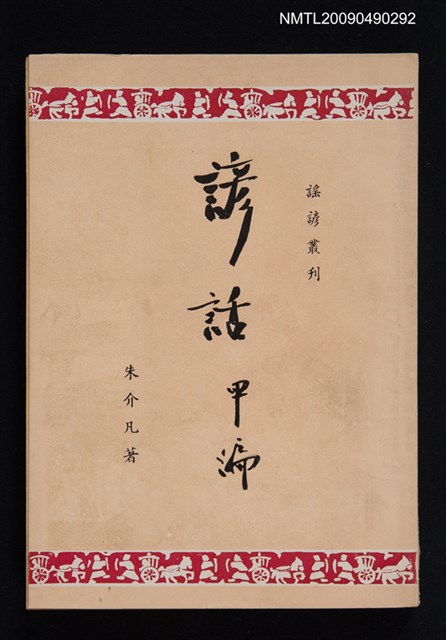 NMTL20090490292
謠諺叢刊
諺話
甲編
朱介凡著